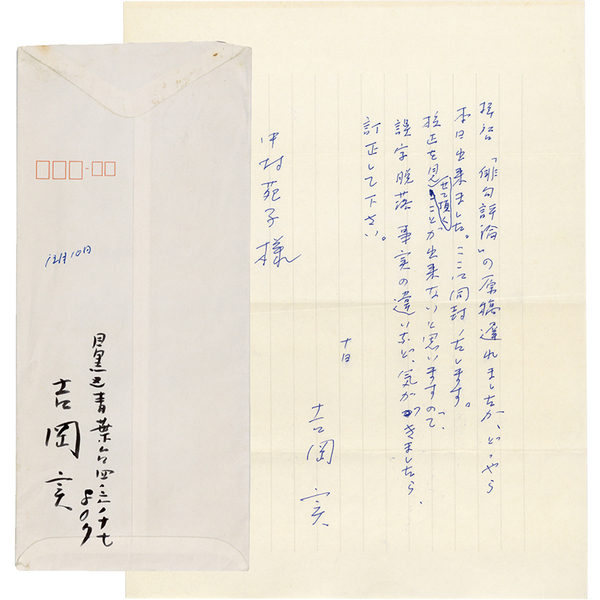 拝啓「俳句評論」の原稿遅れましたが、どうやら
本日出来ました。ここに同封いたします。
校正を見せて頂くことが出来ないと思いますので、
誤字脱落 事実の違いなど、気がつきましたら、
訂正して下さい。
十日
吉岡実
中村苑子様
12月10日
目黒区青葉台四ノ三ノ十七
吉岡実